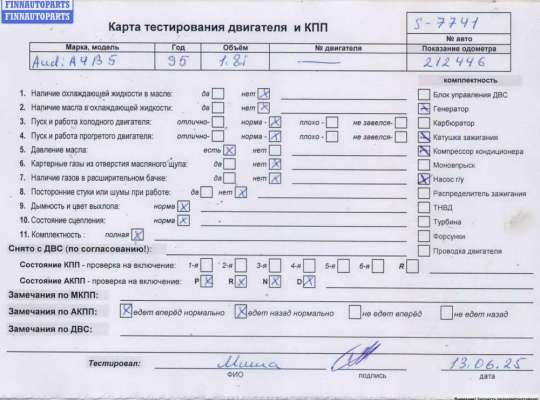 FINNAUTOPARTS
FINNAUTOPARTS
Карта тестирования двигателя и КПП
S-7741
№ авто
Марка, модель Год Объём № двигателя Показание одометра
Audi A4 B5 95 1.8i — 212446
комплектность
1. Наличие охлаждающей жидкости в масле: да нет X
2. Наличие масла в охлаждающей жидкости: да нет X
3. Пуск и работа холодного двигателя: отлично- норма - X плохо - не завелся-
4. Пуск и работа прогретого двигателя: отлично- норма - X плохо - не завелся-
5. Давление масла: есть X нет
6. Картерные газы из отверстия масляного щупа: да нет X
7. Наличие газов в расширительном бачке: да нет X
8. Посторонние стуки или шумы при работе: да нет X
9. Дымность и цвет выхлопа: норма X
10. Состояние сцепления: норма X
11. Комплектность : полная X
Блок управления ДВС
X Генератор
Карбюратор
X Катушка зажигания
X Компрессор кондиционера
Моновпрыск
X Насос г/у
Распределитель зажигания
ТНВД
Турбина
Форсунки
Проводка двигателя
Снято с ДВС (по согласованию!):
Состояние КПП - проверка на включение: 1-я 2-я 3-я 4-я 5-я 6-я R
Состояние АКПП - проверка на включение: P X R X N X D X
Замечания по МКПП:
Замечания по АКПП: X едет вперёд нормально X едет назад нормально не едет вперёд не едет назад
Замечания по ДВС:
Тестировал: Миша 13.06.25
ФИО подпись дата